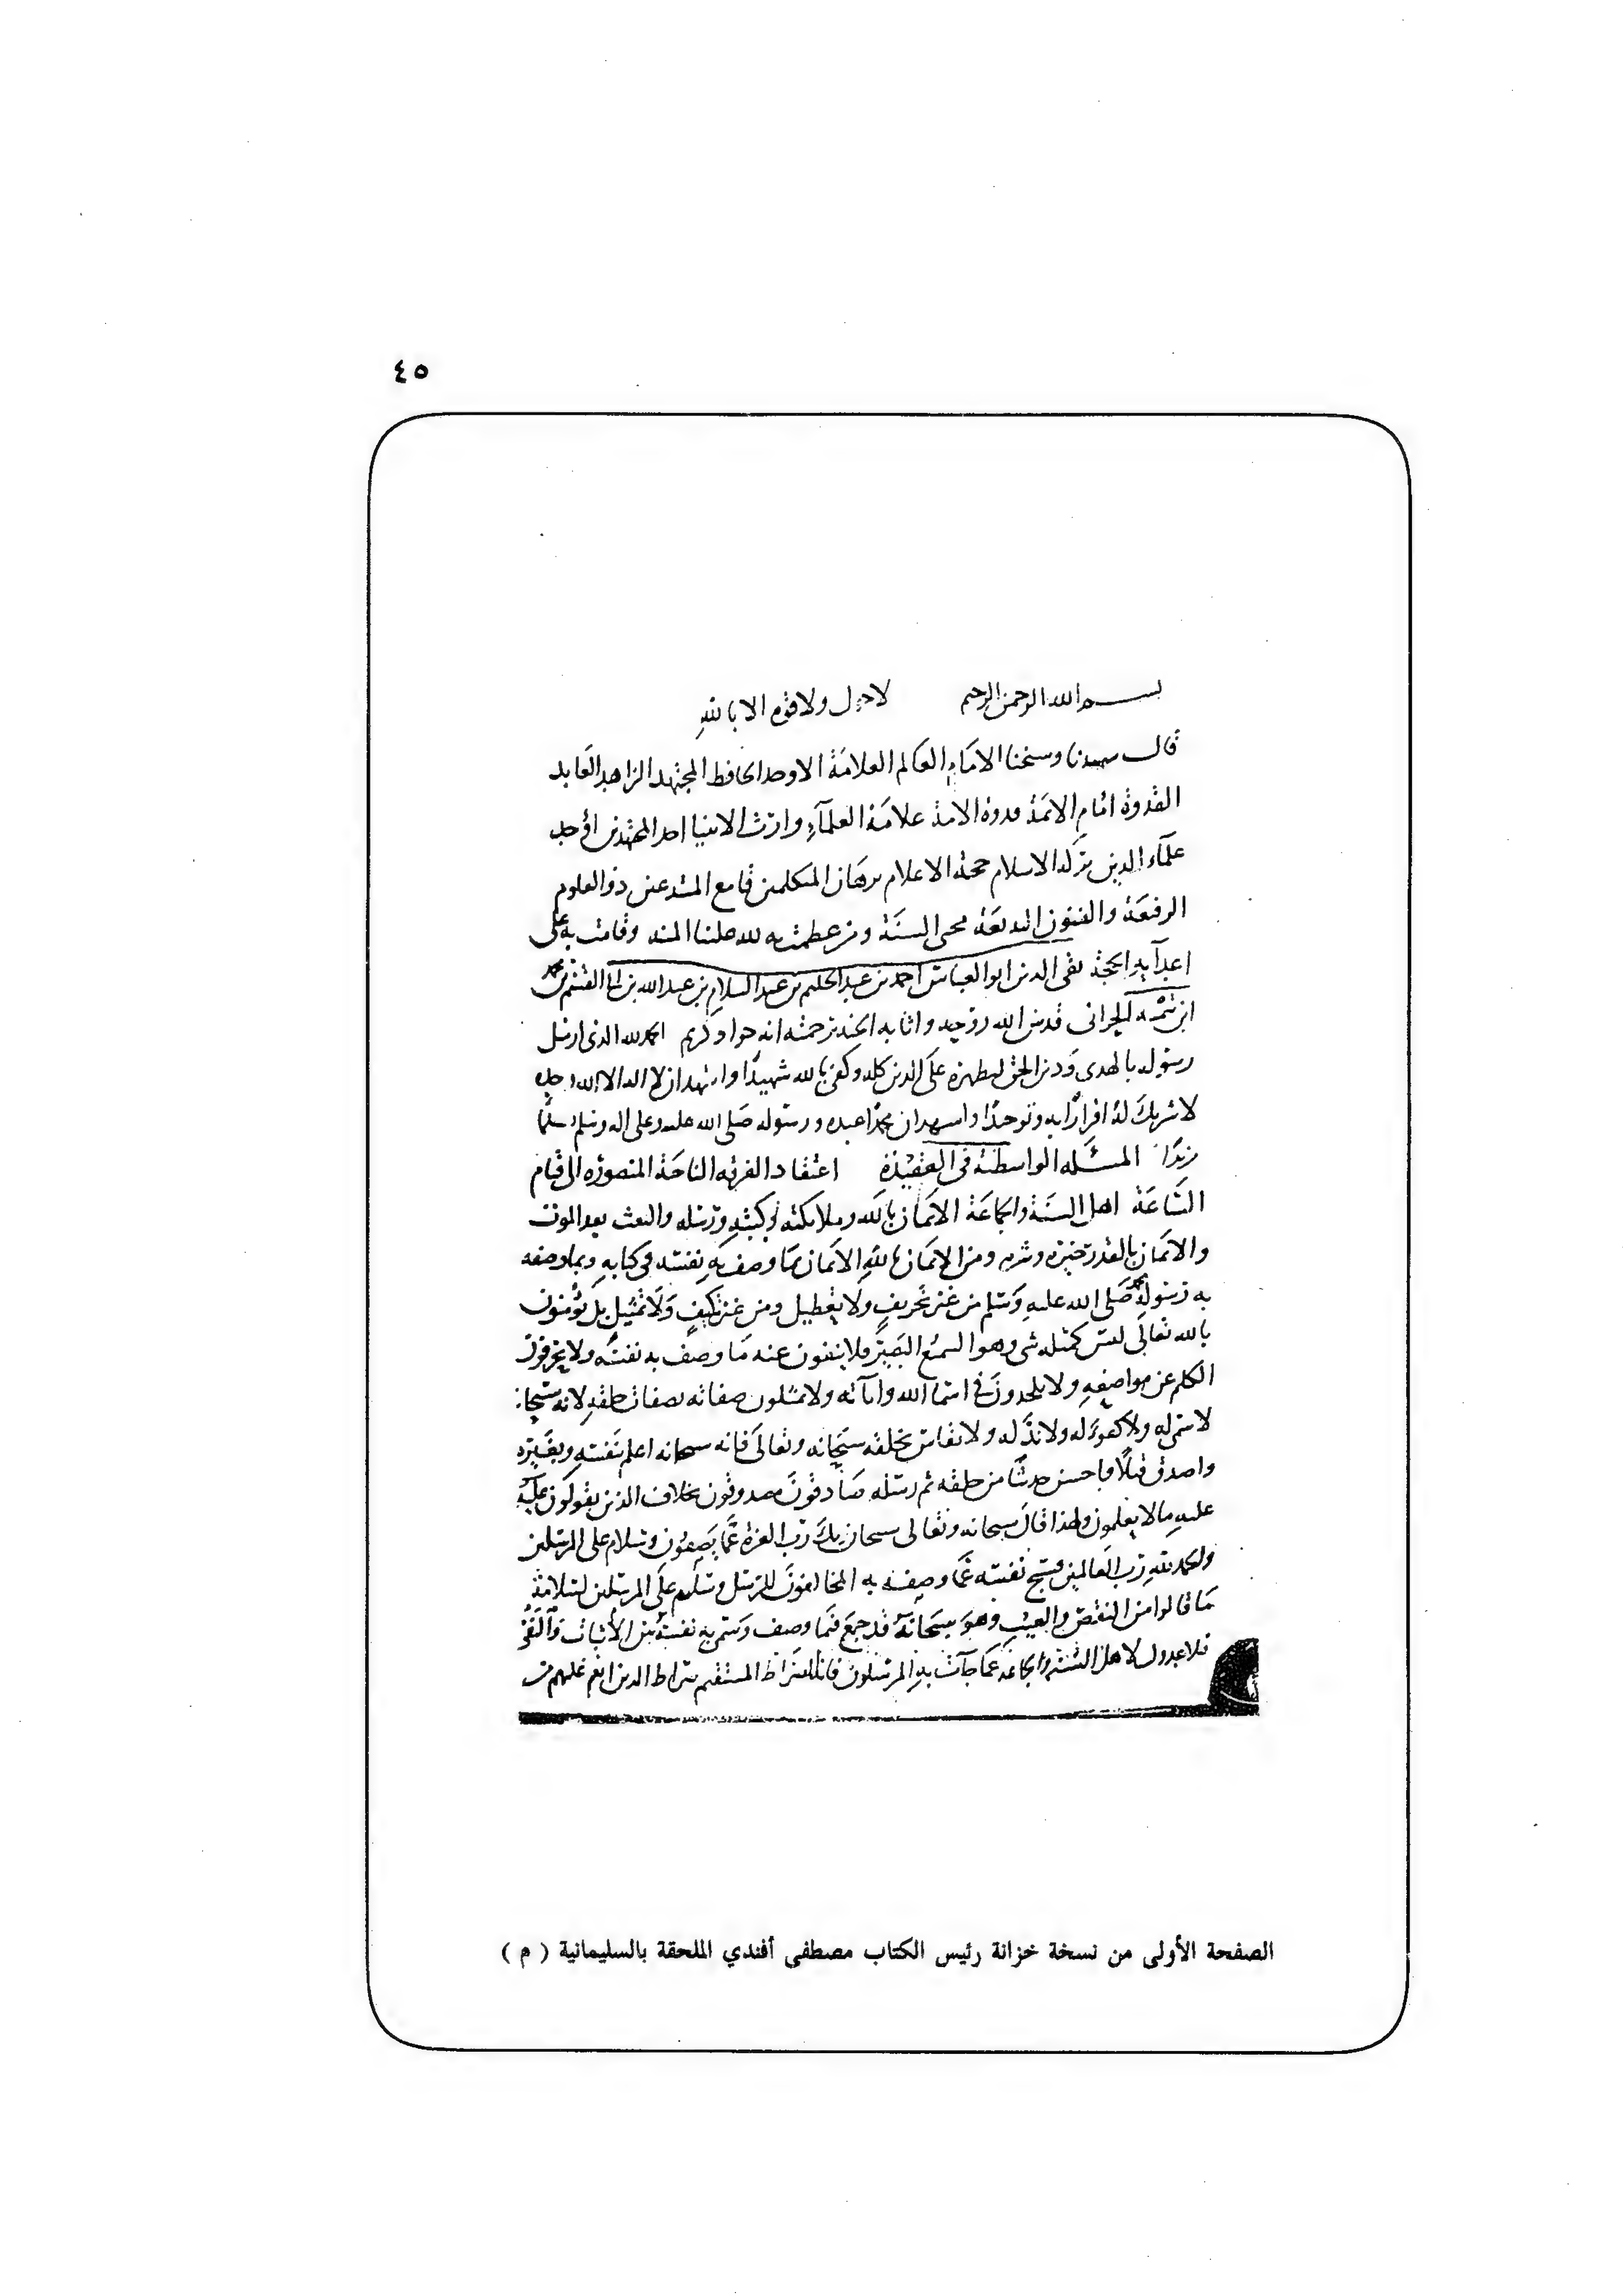 ٤٥
بسم الله الرحمن الرحيم لا حول ولا قوة الا بالله
قال سيدنا وشيخنا الامام العالم العلامة الاوحد الحافظ المجتهد الزاهد العابد
القدوة امام الائمة قدوة الامة علامة العلماء وارث الانبيا اخر المجتهدين اوحد
علماء الدين بركة الاسلام حجة الاعلام برهان المتكلمين قامع المبتدعين ذو العلوم
الرفيعة والفنون البديعة محيي السنة ومن عظمت به لله علينا المنه وقامت به على
اعدائه الحجة تقي الدين ابو العباس احمد بن عبد الحليم بن عبد السلام بن عبد الله بن ابي القسم بن محمد
ابن تيمية الحراني قدس الله روحه واثابه الجنة برحمته انه جواد كريم الحمد لله الذي ارسل
رسوله بالهدى ودين الحق ليظهره على الدين كله وكفى بالله شهيدا واشهد ان لا اله الا الله وحده
لا شريك له اقرارا به وتوحيدا واشهد ان محمدا عبده ورسوله صلى الله عليه وعلى اله وسلم تسليما
مزيدا المسئله الواسطية في العقيدة اعتقاد الفرقه الناجية المنصوره الى قيام
الساعة اهل السنة والجماعة الايمان بالله وملائكته وكتبه ورسله والبعث بعد الموت
والايمان بالقدر خيره وشره ومن الايمان بالله الايمان بما وصف به نفسه في كتابه وبما وصفه
به رسوله محمد صلى الله عليه وسلم من غير تحريف ولا تعطيل ومن غير تكييف ولا تمثيل بل يؤمنون
بالله تعالى ليس كمثله شي وهو السميع البصير فلا ينفون عنه ما وصف به نفسه ولا يحرفون
الكلم عن مواضعه ولا يلحدون في اسما الله واياته ولا يمثلون صفاته بصفات خلقه لانه سبحانه
لا سمي له ولا كفو له ولا ند له ولا يقاس بخلقه سبحانه وتعالى فانه سبحانه اعلم بنفسه وبغيره
واصدق قيلا واحسن حديثا من خلقه ثم رسله صادقون مصدوقون بخلاف الذين يقولون عليه
عليه ما لا يعلمون ولهذا قال سبحانه وتعالى سبحان ربك رب العزة عما يصفون وسلام على المرسلين
والحمد لله رب العالمين فسبح نفسه عما وصفه به المخالفون للرسل وسلم على المرسلين لسلامة
ما قالوا من النقص والعيب وهو سبحانه قد جمع فيما وصف وسمى به نفسه بين الاثبات والنفي
فلا عدول لاهل السنة والجماعة عما جآت به المرسلون فانه الصراط المستقيم صراط الذين انعم عليهم من
الصفحة الأولى من نسخة خزانة رئيس الكتاب مصطفى أفندي الملحقة بالسليمانية ( م )